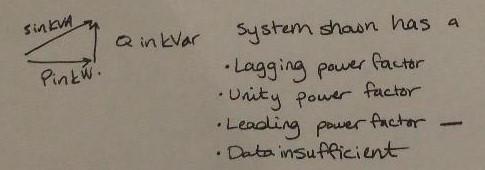 S in kVA
Q in kVar
P in kW.
System shown has a
· Lagging power factor
· Unity power factor
· Leading power factor —
· Data insufficient